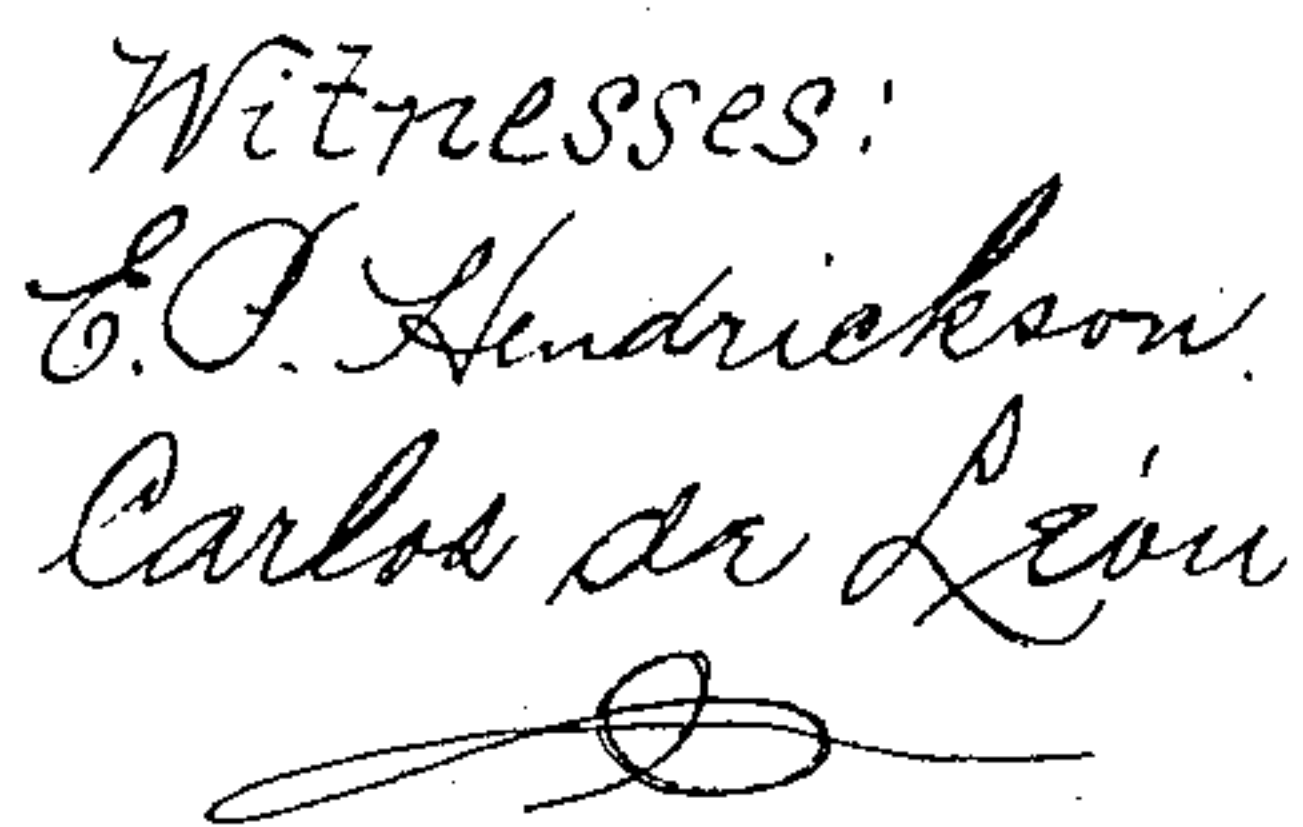 Witnesses:
E. P. Hendrickson.
Carlos de León